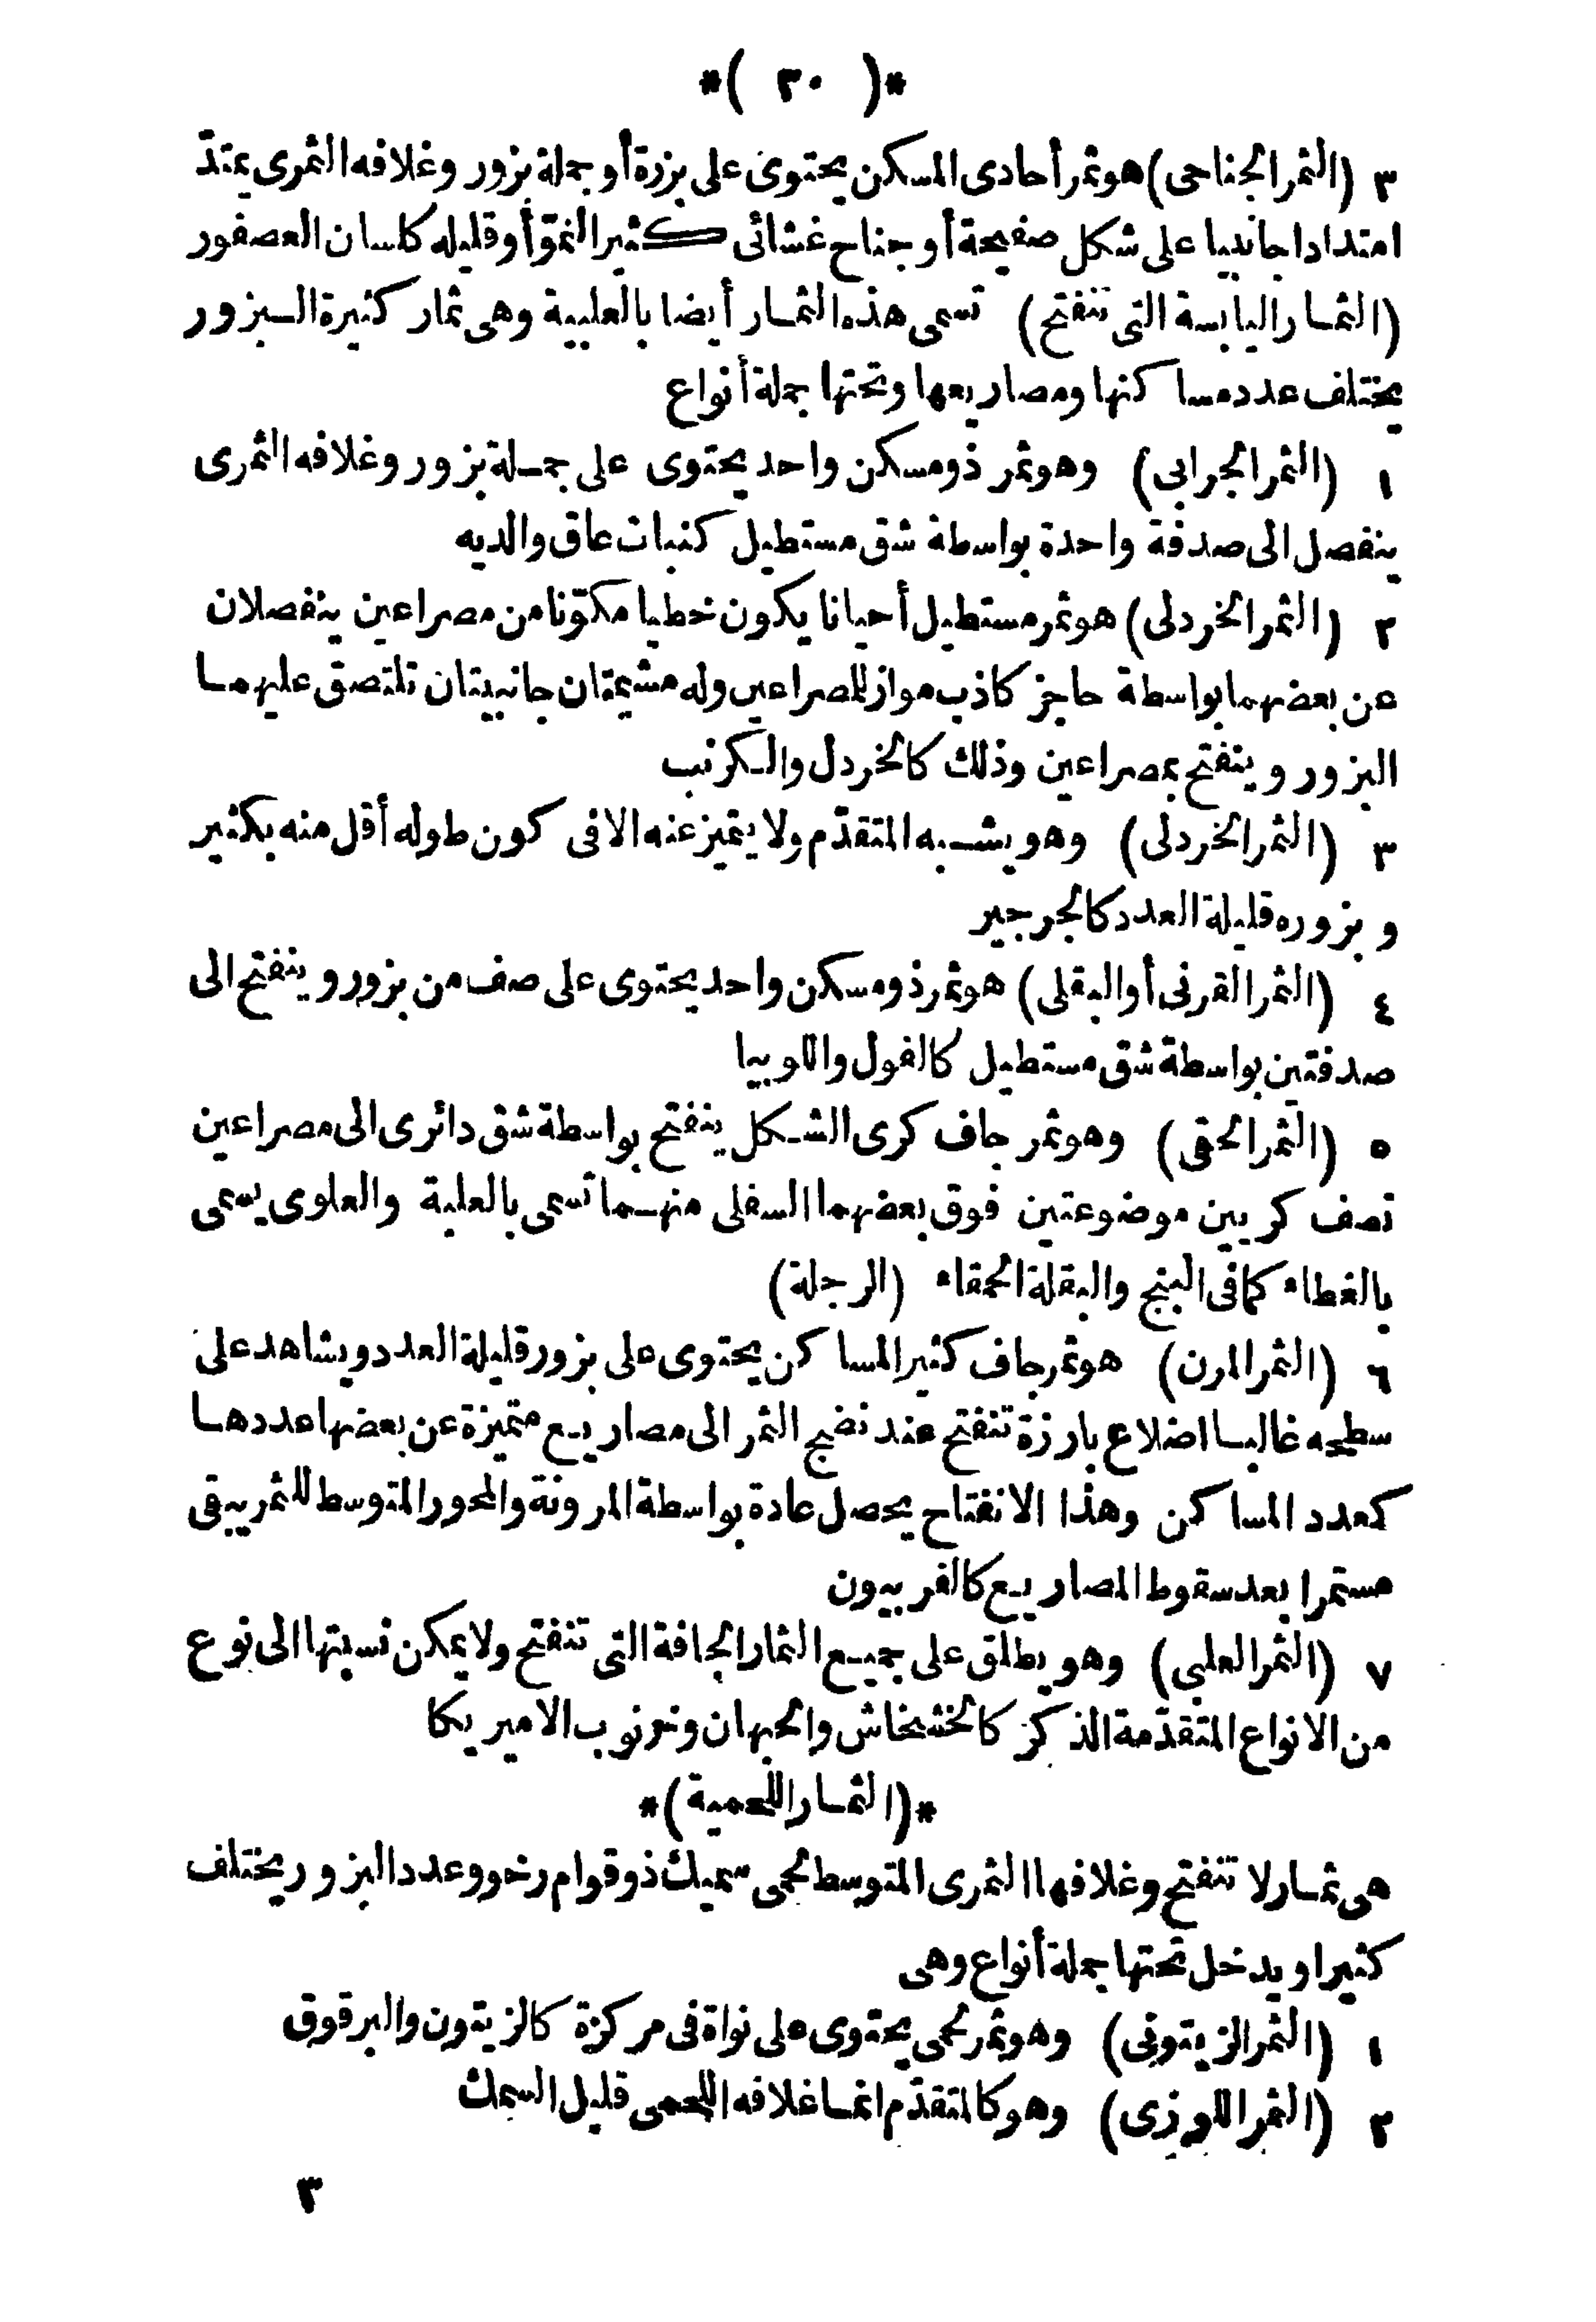 *( ٣٠ )*
٣ (الثمر الجناحى) هو ثمر أحادى المسكن يحتوى على بزرة أو جملة بزور وغلافه الثمرى يمتدّ
امتدادا جانبيا على شكل صفيحة أو جناح غشائى كثير النموّ أو قليله كلسان العصفور
(الثمار اليابسة التى تنفتح) تسمى هذه الثمار أيضا بالعلبية وهى ثمار كثيرة البزور
يختلف عدد مساكنها ومصاريعها وتحتها جملة أنواع
١ (الثمر الجرابى) وهو ثمر ذو مسكن واحد يحتوى على جملة بزور وغلافه الثمرى
ينفصل الى صدفة واحدة بواسطة شق مستطيل كنبات عاق والديه
٢ (الثمر الخردلى) هو ثمر مستطيل أحيانا يكون خطيا مكوّنا من مصراعين ينفصلان
عن بعضهما بواسطة حاجز كاذب مواز للمصراعين وله مشيمتان جانبيتان تلتصق عليهما
البزور وينفتح بمصراعين وذلك كالخردل والكرنب
٣ (الثمر الخردلى) وهو يشبه المتقدّم ولا يتميز عنه الا فى كون طوله أقل منه بكثير
وبزوره قليلة العدد كالجرجير
٤ (الثمر القرنى أو البقلى) هو ثمر ذو مسكن واحد يحتوى على صف من بزور وينفتح الى
صدفتين بواسطة شق مستطيل كالفول واللوبيا
٥ (الثمر الحقى) وهو ثمر جاف كرى الشكل ينفتح بواسطة شق دائرى الى مصراعين
نصف كريين موضوعتين فوق بعضهما السفلى منهما تسمى بالعلبة والعلوى يسمى
بالغطاء كما فى البنج والبقلة الحمقاء (الرجلة)
٦ (الثمر المرن) هو ثمر جاف كثير المساكن يحتوى على بزور قليلة العدد ويشاهد على
سطحه غالبا اضلاع بارزة تنفتح عند نضج الثمر الى مصاريع متميزة عن بعضها عددها
كعدد المساكن وهذا الانفتاح يحصل عادة بواسطة المرونة والمحور المتوسط للثمر يبقى
مستمرا بعد سقوط المصاريع كالفربيون
٧ (الثمر العلبى) وهو يطلق على جميع الثمار الجافة التى تنفتح ولا يمكن نسبتها الى نوع
من الانواع المتقدّمة الذكر كالخشخاش والحبهان وخرنوب الاميريكا
*(الثمار اللحمية)*
هى ثمار لا تنفتح وغلافها الثمرى المتوسط لحمى سميك ذو قوام رخو وعدد البزور يختلف
كثيرا ويدخل تحتها جملة أنواع وهى
١ (الثمر الزيتونى) وهو ثمر لحمى يحتوى على نواة فى مركزة كالزيتون والبرقوق
٢ (الثمر اللوزى) وهو كالمتقدّم انما غلافه اللحمى قليل السمك
٣